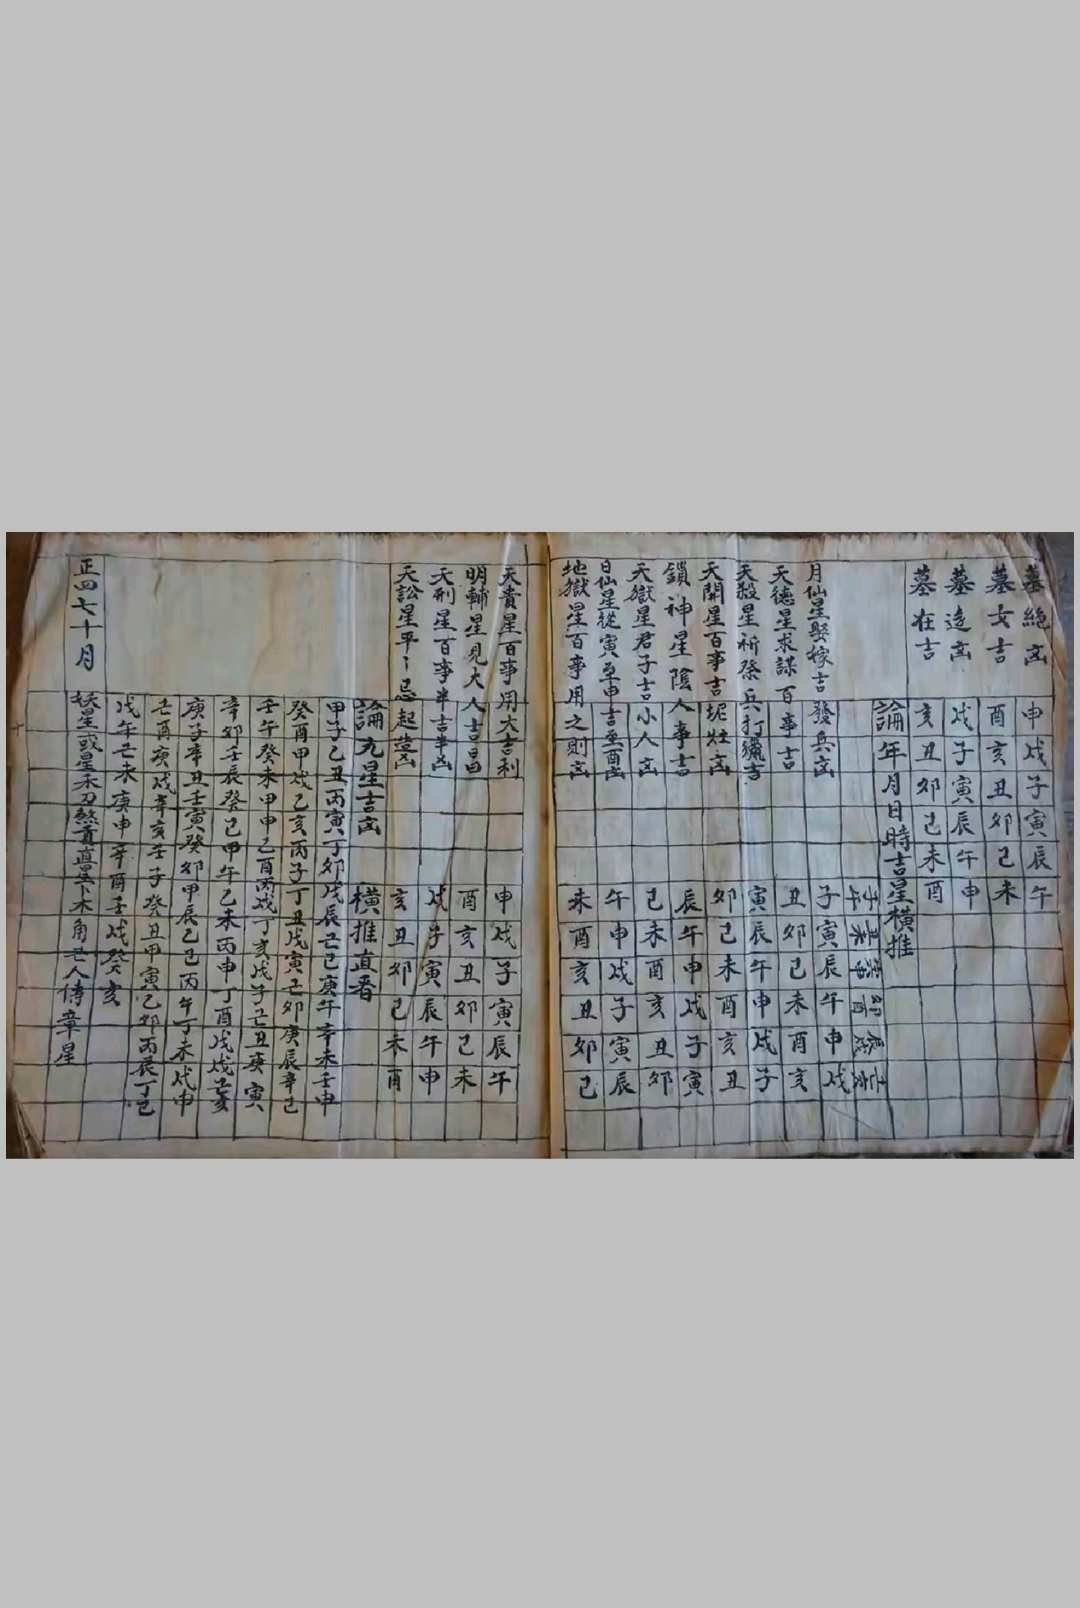 墓絕凶 申戌子寅辰午
墓女吉 酉亥丑卯巳未
墓迯凶 戌子寅辰午申
墓在吉 亥丑卯巳未酉
論年月日時吉星橫推
子午 丑未 寅申 卯酉 辰戌 巳亥
月仙星娶嫁吉發兵凶 子寅辰午申戌
天德星求謀百事吉 丑卯巳未酉亥
天殺星祈祭兵打獵吉 寅辰午申戌子
天開星百事吉坭灶凶 卯巳未酉亥丑
鎖神星陰人事吉 辰午申戌子寅
天獄星君子吉小人凶 巳未酉亥丑卯
日仙星從寅至申吉至酉凶 午申戌子寅辰
地獄星百事用之則凶 未酉亥丑卯巳
天貴星百事用大吉利 申戌子寅辰午
明輔星見大人吉昌 酉亥丑卯巳未
天刑星百事半吉半凶 戌子寅辰午申
天訟星平々忌起造凶 亥丑卯巳未酉
論九星吉凶 橫推直看
甲子乙丑丙寅丁卯戊辰己巳庚午辛未壬申
癸酉甲戌乙亥丙子丁丑戊寅己卯庚辰辛巳
壬午癸未甲申乙酉丙戌丁亥戊子己丑庚寅
辛卯壬辰癸巳甲午乙未丙申丁酉戊戌己亥
庚子辛丑壬寅癸卯甲辰乙巳丙午丁未戊申
己酉庚戌辛亥壬子癸丑甲寅乙卯丙辰丁巳
戊午己未庚申辛酉壬戌癸亥
正四七十月
妖星或星禾刀煞貢直星卜木角己人倳章星